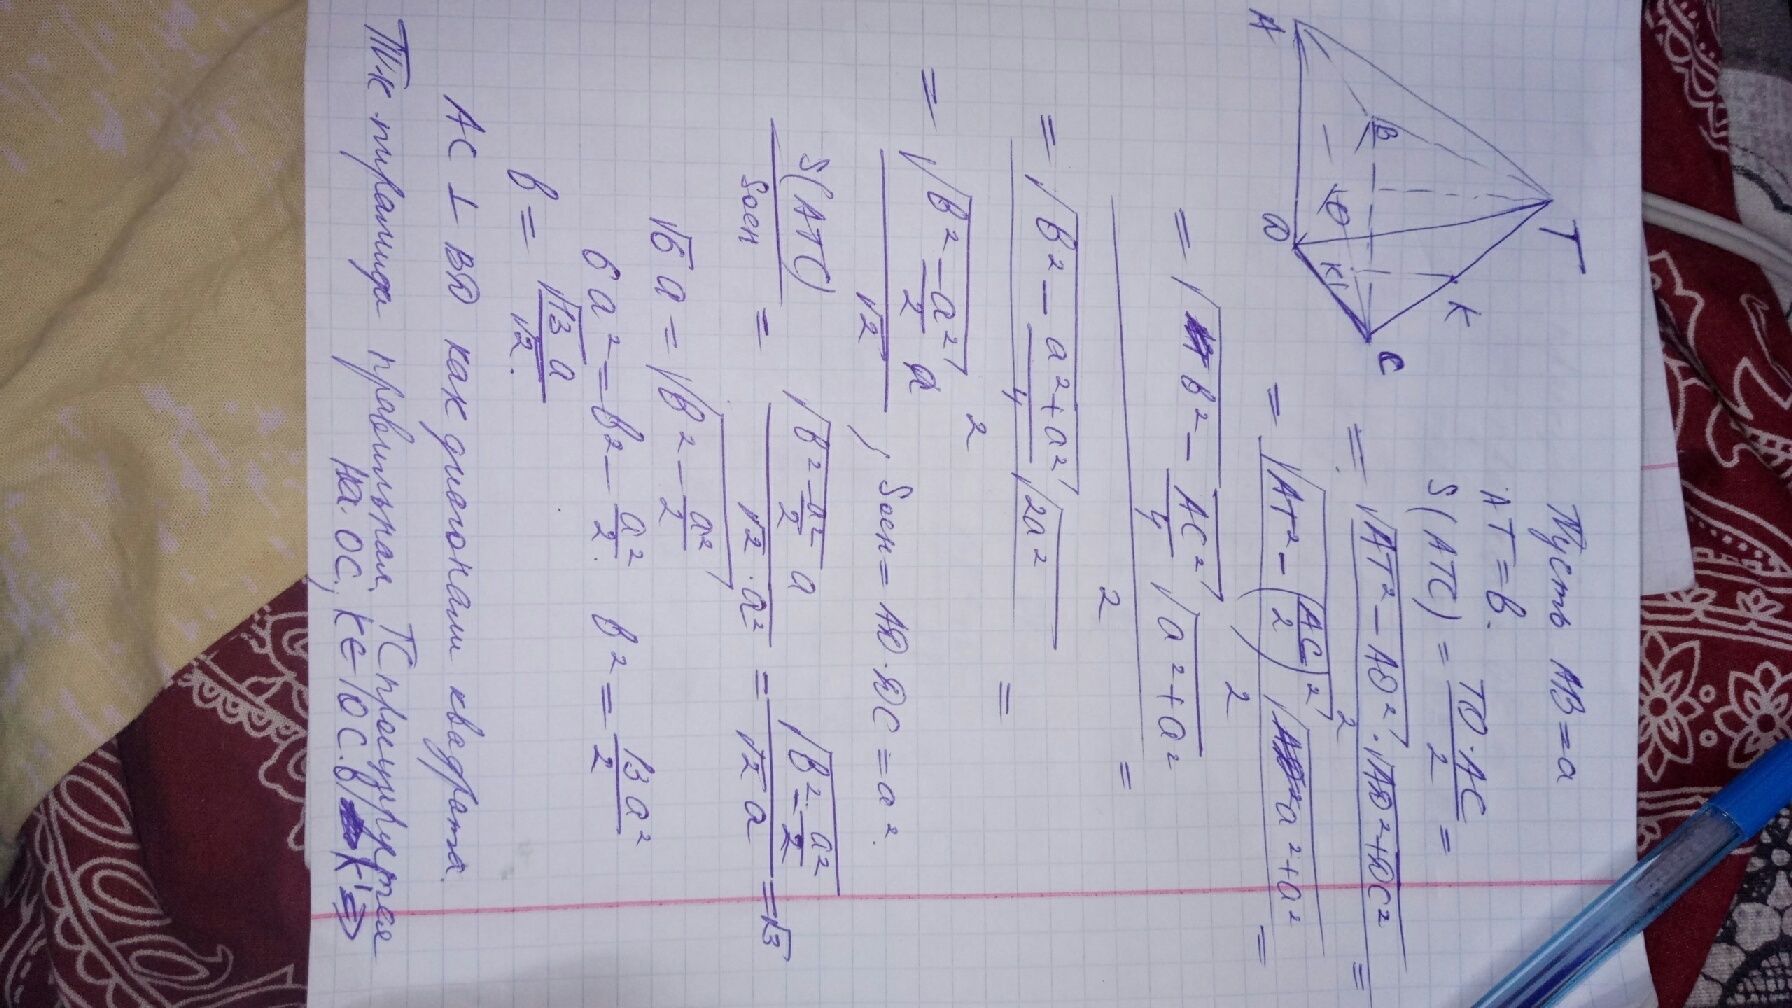 A
B
T
O
D
K
K'
C
Пусть AB=a
AT=b.
S(ATC) = TO·AC / 2 =
= √(AT² − AO²) · √(AD²+DC²) / 2 =
= √(AT² − (AC/2)²) √(a²+a²) / 2 =
= √(b² − AC²/4) √(a²+a²) / 2 =
= √(b² − (a²+a²)/4) √(2a²) / 2 =
= √(b² − a²/2) a / √2 , Sосн = AD·DC = a².
S(ATC) / Sосн = √(b² − a²/2) a / (√2·a²) = √(b² − a²/2) / (√2 a) = √3
√6 a = √(b² − a²/2)
6a² = b² − a²/2. b² = 13a²/2
b = √13 a / √2.
AC ⊥ BD как диагонали квадрата.
Т.к пирамида правильная, TC проецируется
на OC, K∈TC. в K' ⇒